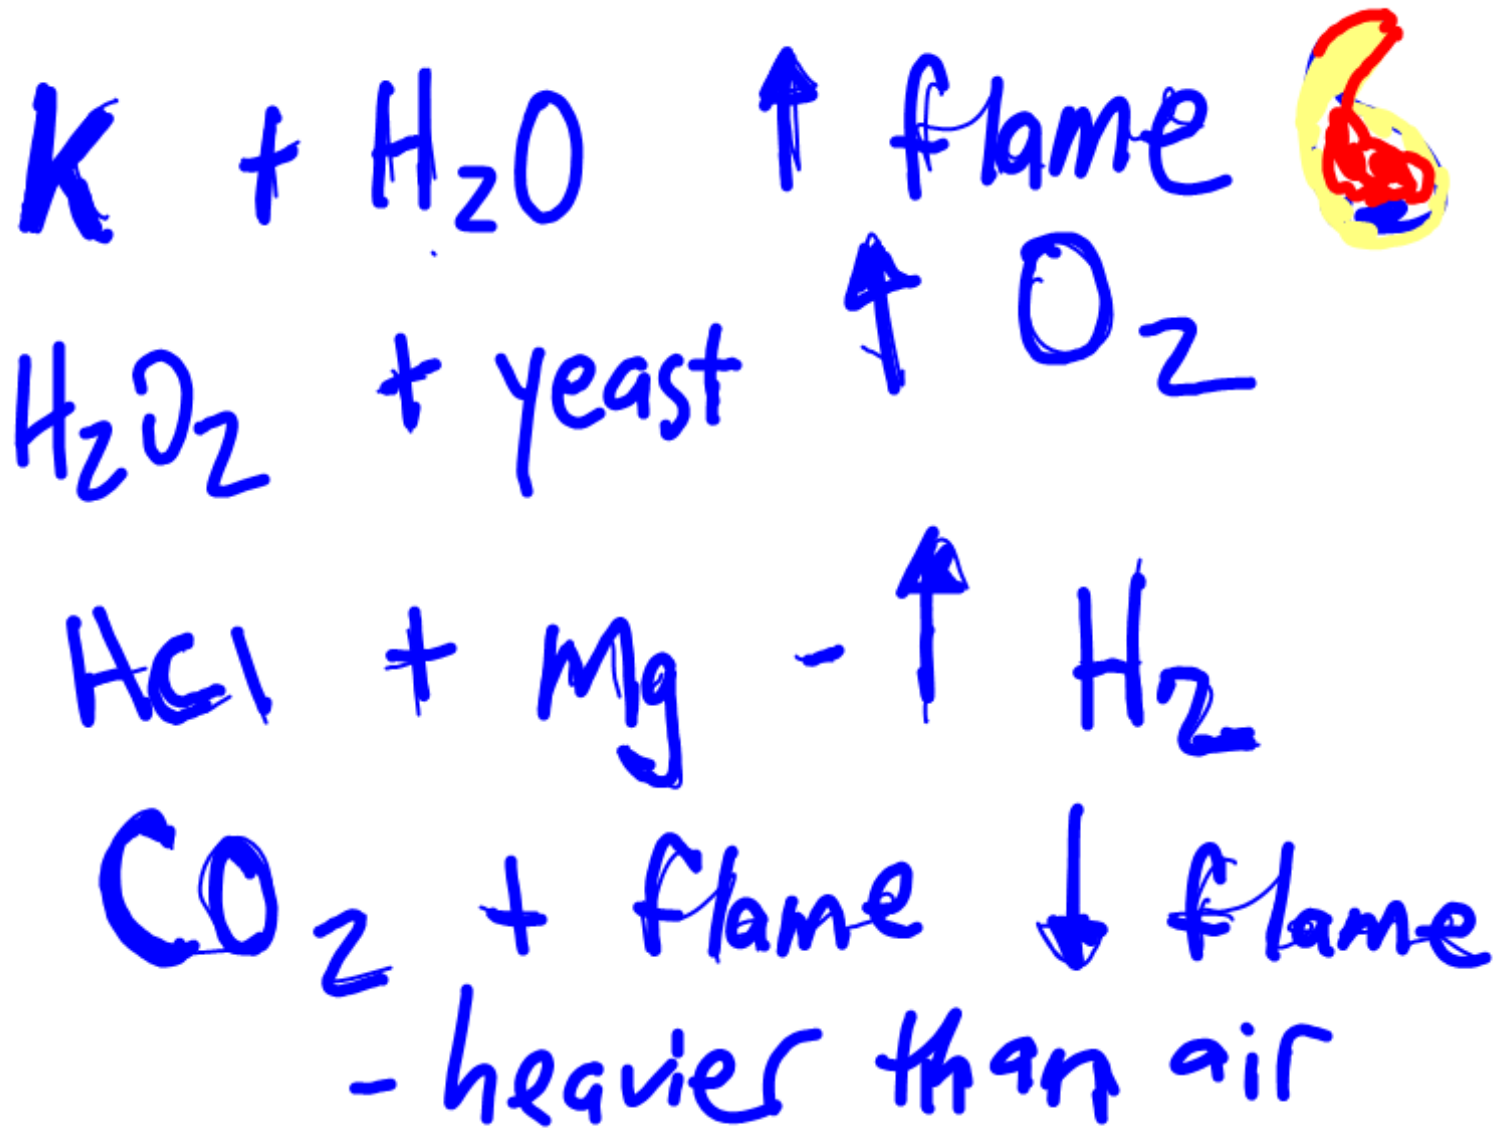 K + H₂O ↑ flame
H₂O₂ + yeast ↑ O₂
HCl + Mg - ↑ H₂
CO₂ + flame ↓ flame
- heavier than air